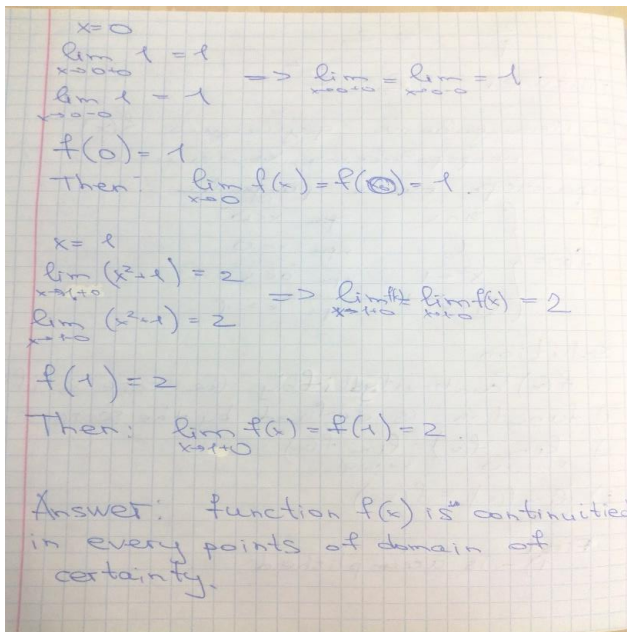 x = 0
lim x→0+0 1 = 1
lim x→0-0 1 = 1
=> lim x→0+0 = lim x→0-0 = 1.
f(0) = 1
Then: lim x→0 f(x) = f(0) = 1.
x = 1
lim x→1+0 (x²+1) = 2
lim x→1-0 (x²+1) = 2
=> lim x→1+0 f(x) = lim x→1-0 f(x) = 2
f(1) = 2
Then: lim x→1+0 f(x) = f(1) = 2.
Answer: function f(x) is continuitied
in every points of domain of
certainty.